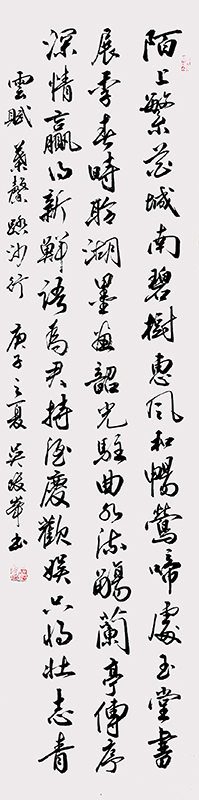 陌上繁花城南碧樹惠風和暢鶯啼處玉堂書
展季春時盼湖墨畫韶光駐曲水流觴蘭亭傳序
深情贏得新鮮語為君持酒慶歡娛只壯志青
雲賦 馨踏莎行 庚子之夏 吳書